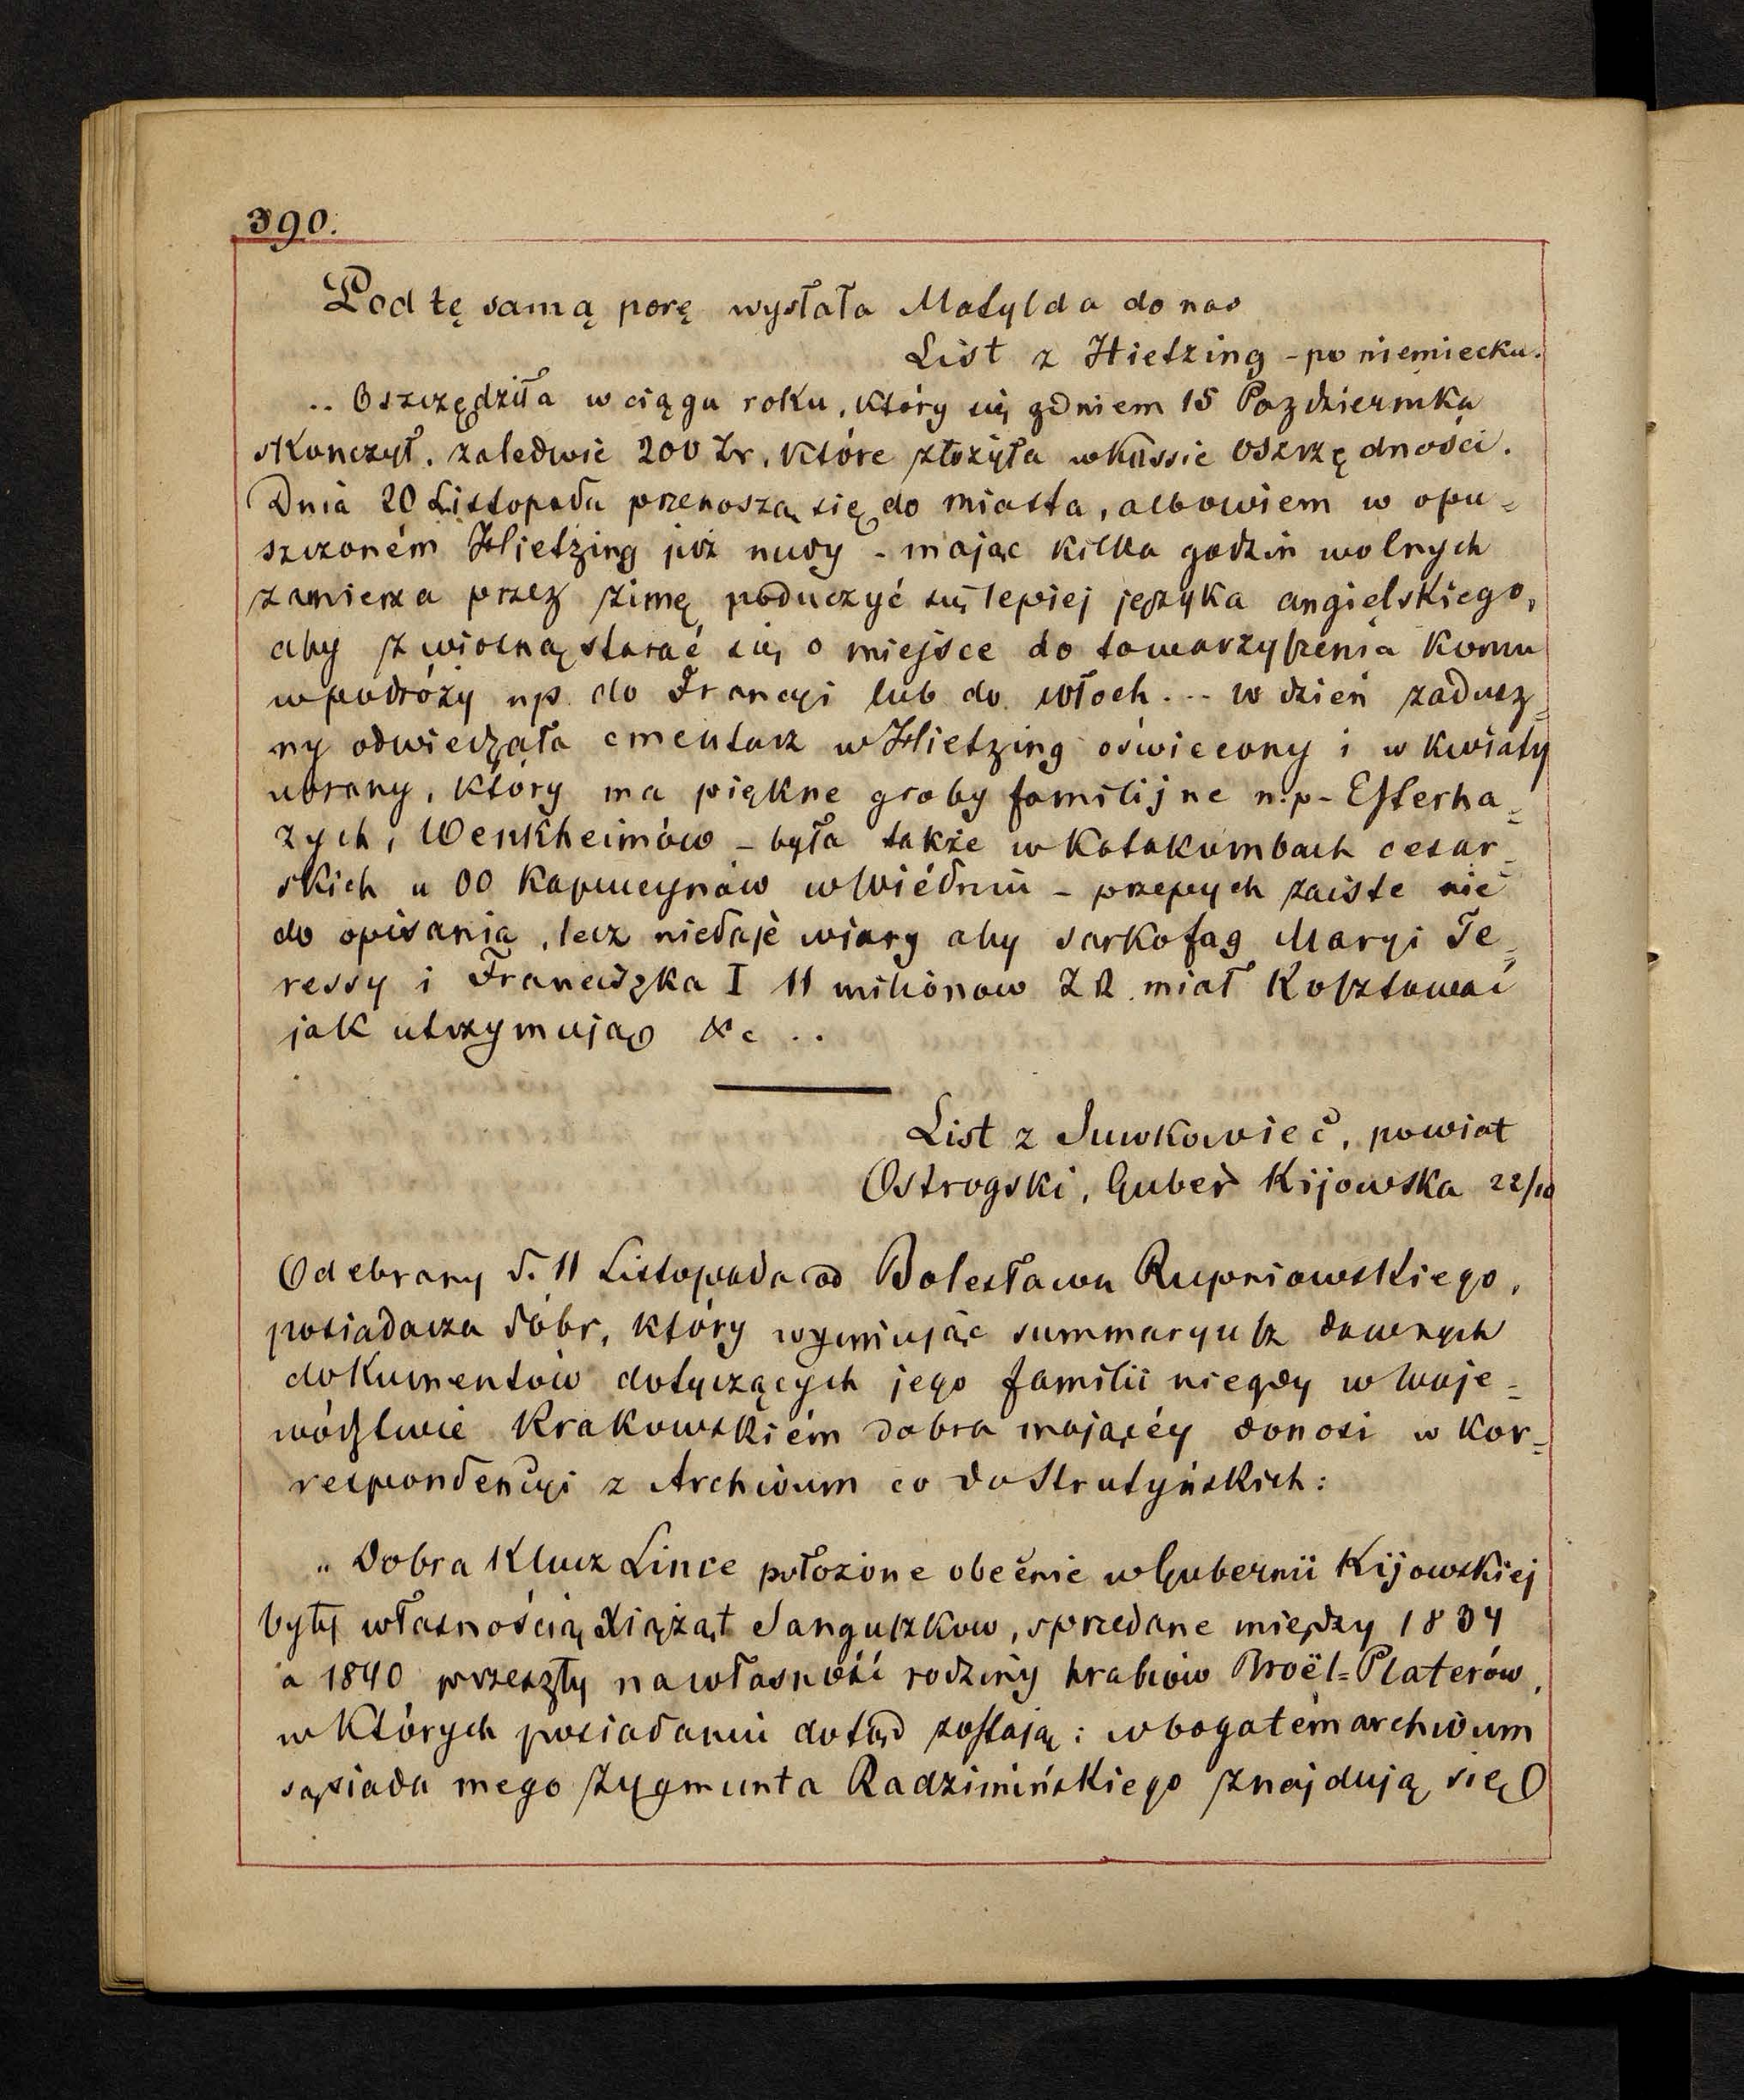 390.
Pod tę samą porę wysłała Matylda do nas
List z Hietzing - po niemiecku.
.. Oszczędziła w ciągu roku, który się z dniem 15 Pazdziernika
skonczył, zaledwie 200 Zr, które złożyła w kassie oszczędności.
Dnia 20 Listopada przenoszą się do miasta, albowiem w opu=
szczoném Hietzing już nudy - mając kilka godzin wolnych
zamierza przez zimę poduczyć się lepiej języka angielskiego,
aby z wiosną starać się o miejsce do towarzyszenia komu
w podróży np. do Francyi lub do włoch ... w dzień zadusz=
ny odwiedzała cmentarz w Hietzing oświecony i w kwiaty
ubrany, który ma piękne groby familijne n.p- Esterha=
zych, Wenkheimów - była także w Katakumbach cesar=
skich u OO Kapucynów w Wiédniu - przepych zaiste nie
do opisania, lecz niedaje wiary aby sarkofag Maryi Te=
ressy i Franciszka I 11 milionow ZR. miał kosztować
jak utrzymują &c ..
List z Suwkowiec, powiat
Ostrogski, Guber Kijowska 22/10
Odebrany d. 11 Listopada od Bolesława Rupniowskiego,
posiadacza dóbr, który wyminując summaryusz dawnych
dokumentów dotyczących jego familii niegdy w Woje=
wództwie Krakowskiém dobra mającéy donosi w kor=
respondencyi z Archiwum co do Strutyńskich:
„ Dobra Klucz Lince położone obecnie w Gubernii Kijowskiej
były własnością Xiążąt Sanguszkow, sprzedane między 1834
a 1840 przeszły na własność rodziny hrabiów Broël=Platerów,
w których posiadaniu dotąd zostają: w bogatém archiwum
sąsiada mego Zygmunta Radzimińskiego znajdują się